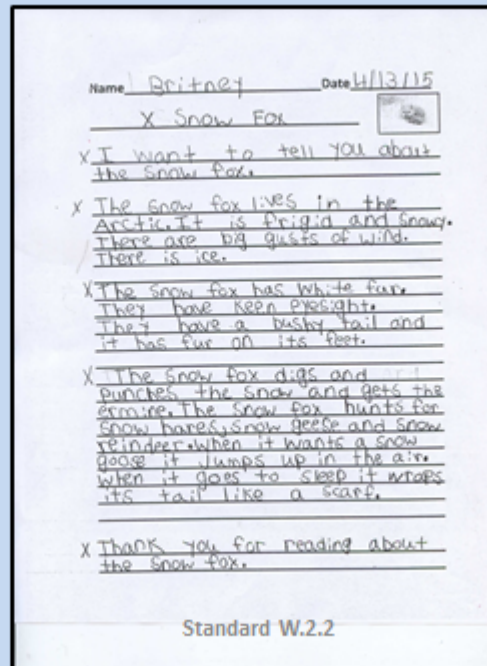 Name Britney Date 4/13/15
X Snow Fox
X I want to tell you about
the snow fox.
X The snow fox lives in the
Arctic. It is frigid and snowy.
There are big gusts of wind.
There is ice.
X The snow fox has white fur.
They have keen eyesight.
They have a bushy tail and
it has fur on its feet.
X The snow fox digs and
punches the snow and gets the
ermine. The snow fox hunts for
snow hares, snow geese and snow
reindeer. when it wants a snow
goose it jumps up in the air.
when it goes to sleep it wraps
its tail like a scarf.
X Thank you for reading about
the snow fox.
Standard W.2.2